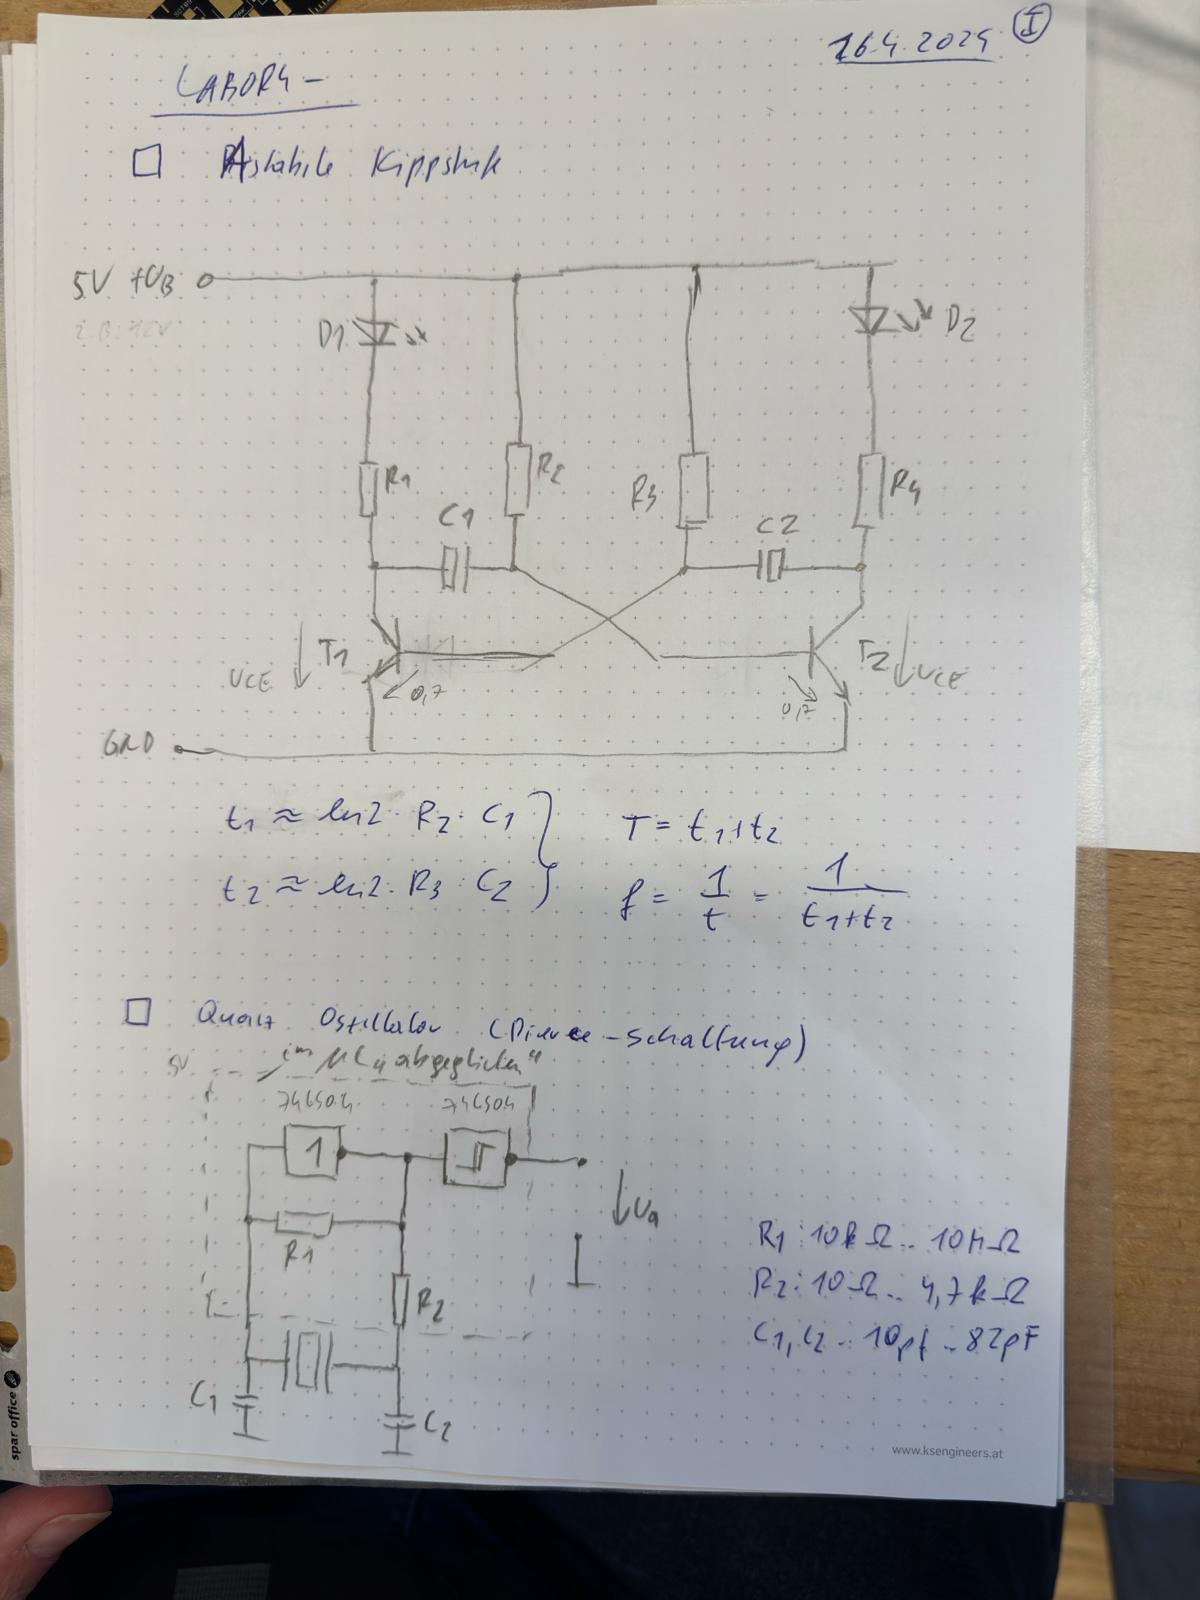 16.4.2024 I
LABOR 4 -
Astabile Kippstufe
5V +UB
z.B. 12V
D1
D2
R1
R2
R3
R4
C1
C2
T1
T2
UCE
UCE
0,7
0,7
GND
t1 ≈ ln2 · R2 · C1
T = t1+t2
t2 ≈ ln2 · R3 · C2
f = 1/t = 1/(t1+t2)
Quarz Oszillator (Pierce-Schaltung)
5V
im µC "abgeglichen"
74LS04
74LS04
1
Ua
R1
R2
C1
C2
R1: 10kΩ .. 10MΩ
R2: 10Ω .. 4,7kΩ
C1, C2 .. 10pF .. 82pF
www.ksengineers.at
spar office